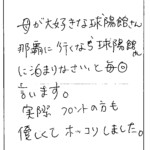 母が大好きな球陽館さん
那覇に行くなら球陽館さん
に泊まりなさい。と毎回
言います。
実際フロントの方も
優しくてホッコリしました。